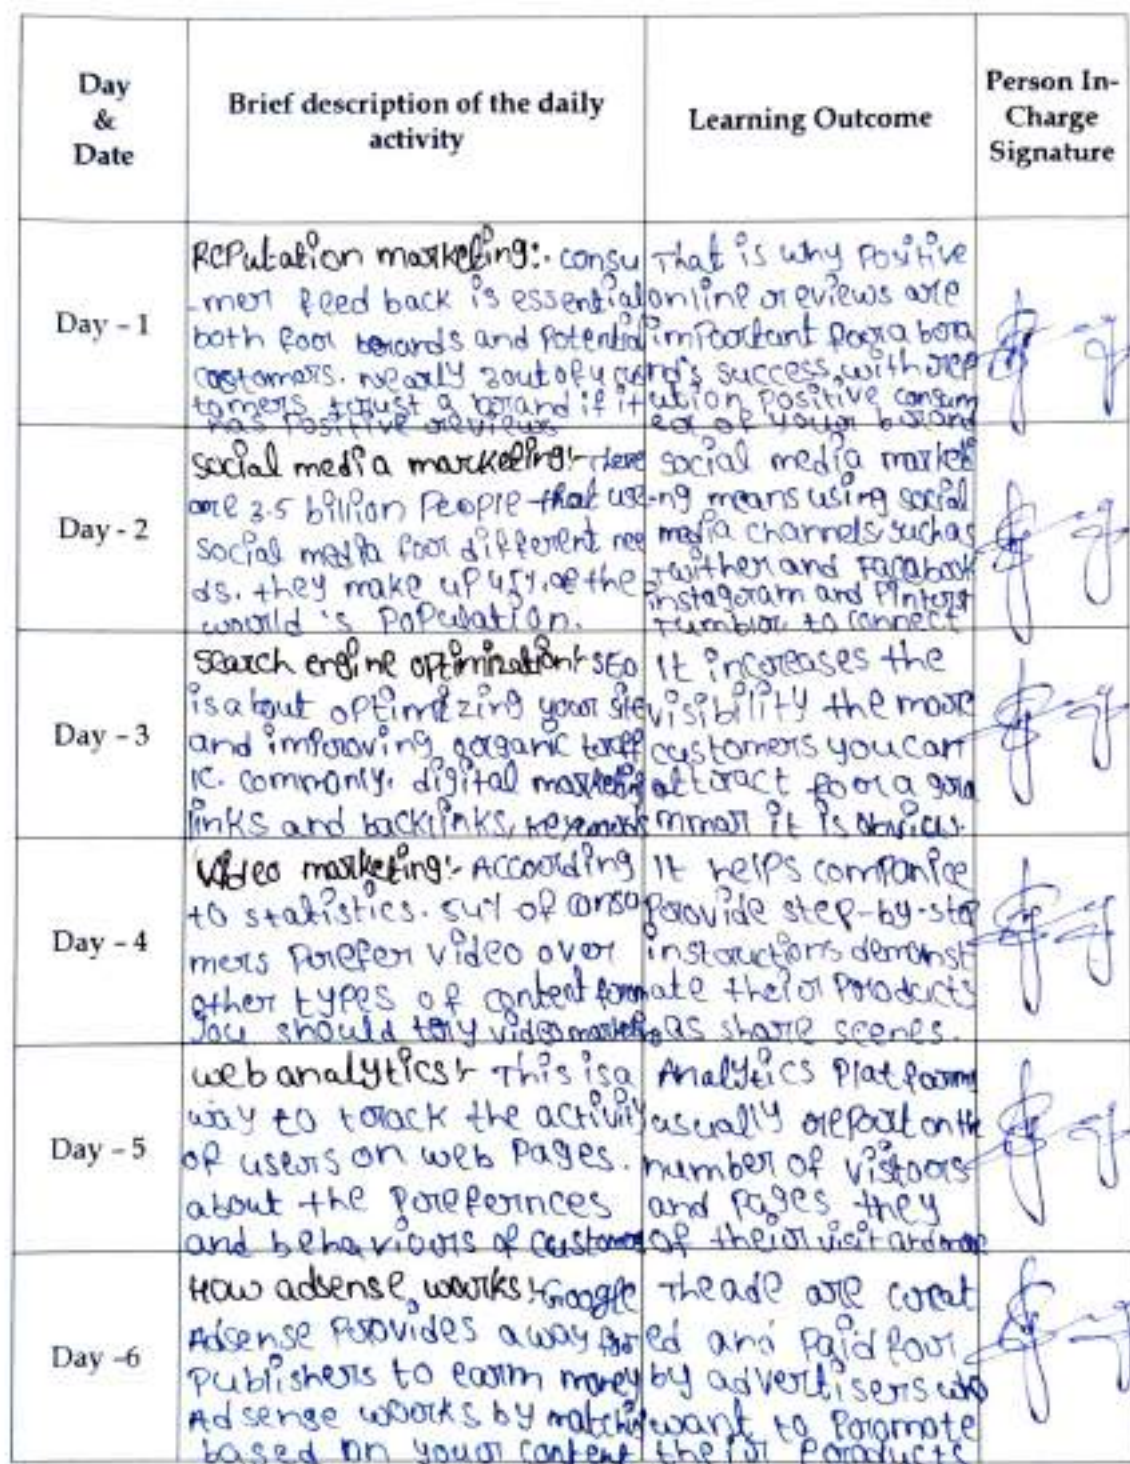 Day
&
Date
Brief description of the daily
activity
Learning Outcome
Person In-
Charge
Signature
Day - 1
Reputation marketing:- consu
-mer feed back is essential
both for brands and Potential
customers. nearly 3 out of 4 cus
tomers trust a brand if it
has Positive reviews
That is why Positive
online reviews are
important for a bra
nd's success, with rep
ution Positive consum
er of your brand
Day - 2
social media marketing:- There
are 3.5 billion People that use
social media for different nee
ds. they make up 45%. of the
world 's Population.
social media marketi
-ng means using social
media channels such as
Twither and Facabook
instagram and Pinterst
Tumblor to connect
Day - 3
Search engine optimization:- SEO
is about optimizing your site
and improving gorganic traff
ic. commonly. digital marketing
links and backlinks, keywords
It increases the
visibility the more
customers you can
attract for a gra
mmar it is obvious.
Day - 4
Video marketing:- According
to statistics. 54% of consu
mers Prefer video over
other types of content from
You should try video marketing
It helps companice
Provide step-by-step
instructions demonst
ate their Products
as share scenes.
Day - 5
web analytics:- This is a
way to track the activity
of users on web Pages.
about the Prefernces
and behaviours of customers
Analytics Platforms
usually report on the
number of vistors
and Pages they
of their visit and more
Day -6
How adsense works:- Google
Adsense Provides a way for
Publishers to earm money
Ad sense works by matching
based on your content
The ade are creat
ed and Paid for
by advertisers who
want to Promote
their Products